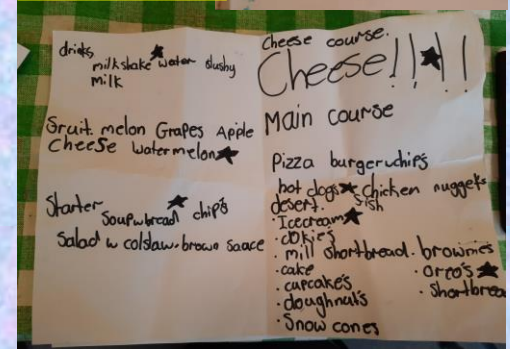 drinks
milkshake water slushy
milk
Fruit. melon Grapes Apple
Cheese watermelon
Starter
Soup w bread chips
Salad w colslaw. brown sauce
Cheese course.
Cheese!!!!
Main course
Pizza burger w chips
hot dogs chicken nuggets
fish
desert.
• Icecream
• cookies
• mill shortbread. • brownies
• cake • oreo's
• cupcakes • Shortbrea
• doughnuts
• Snow cones